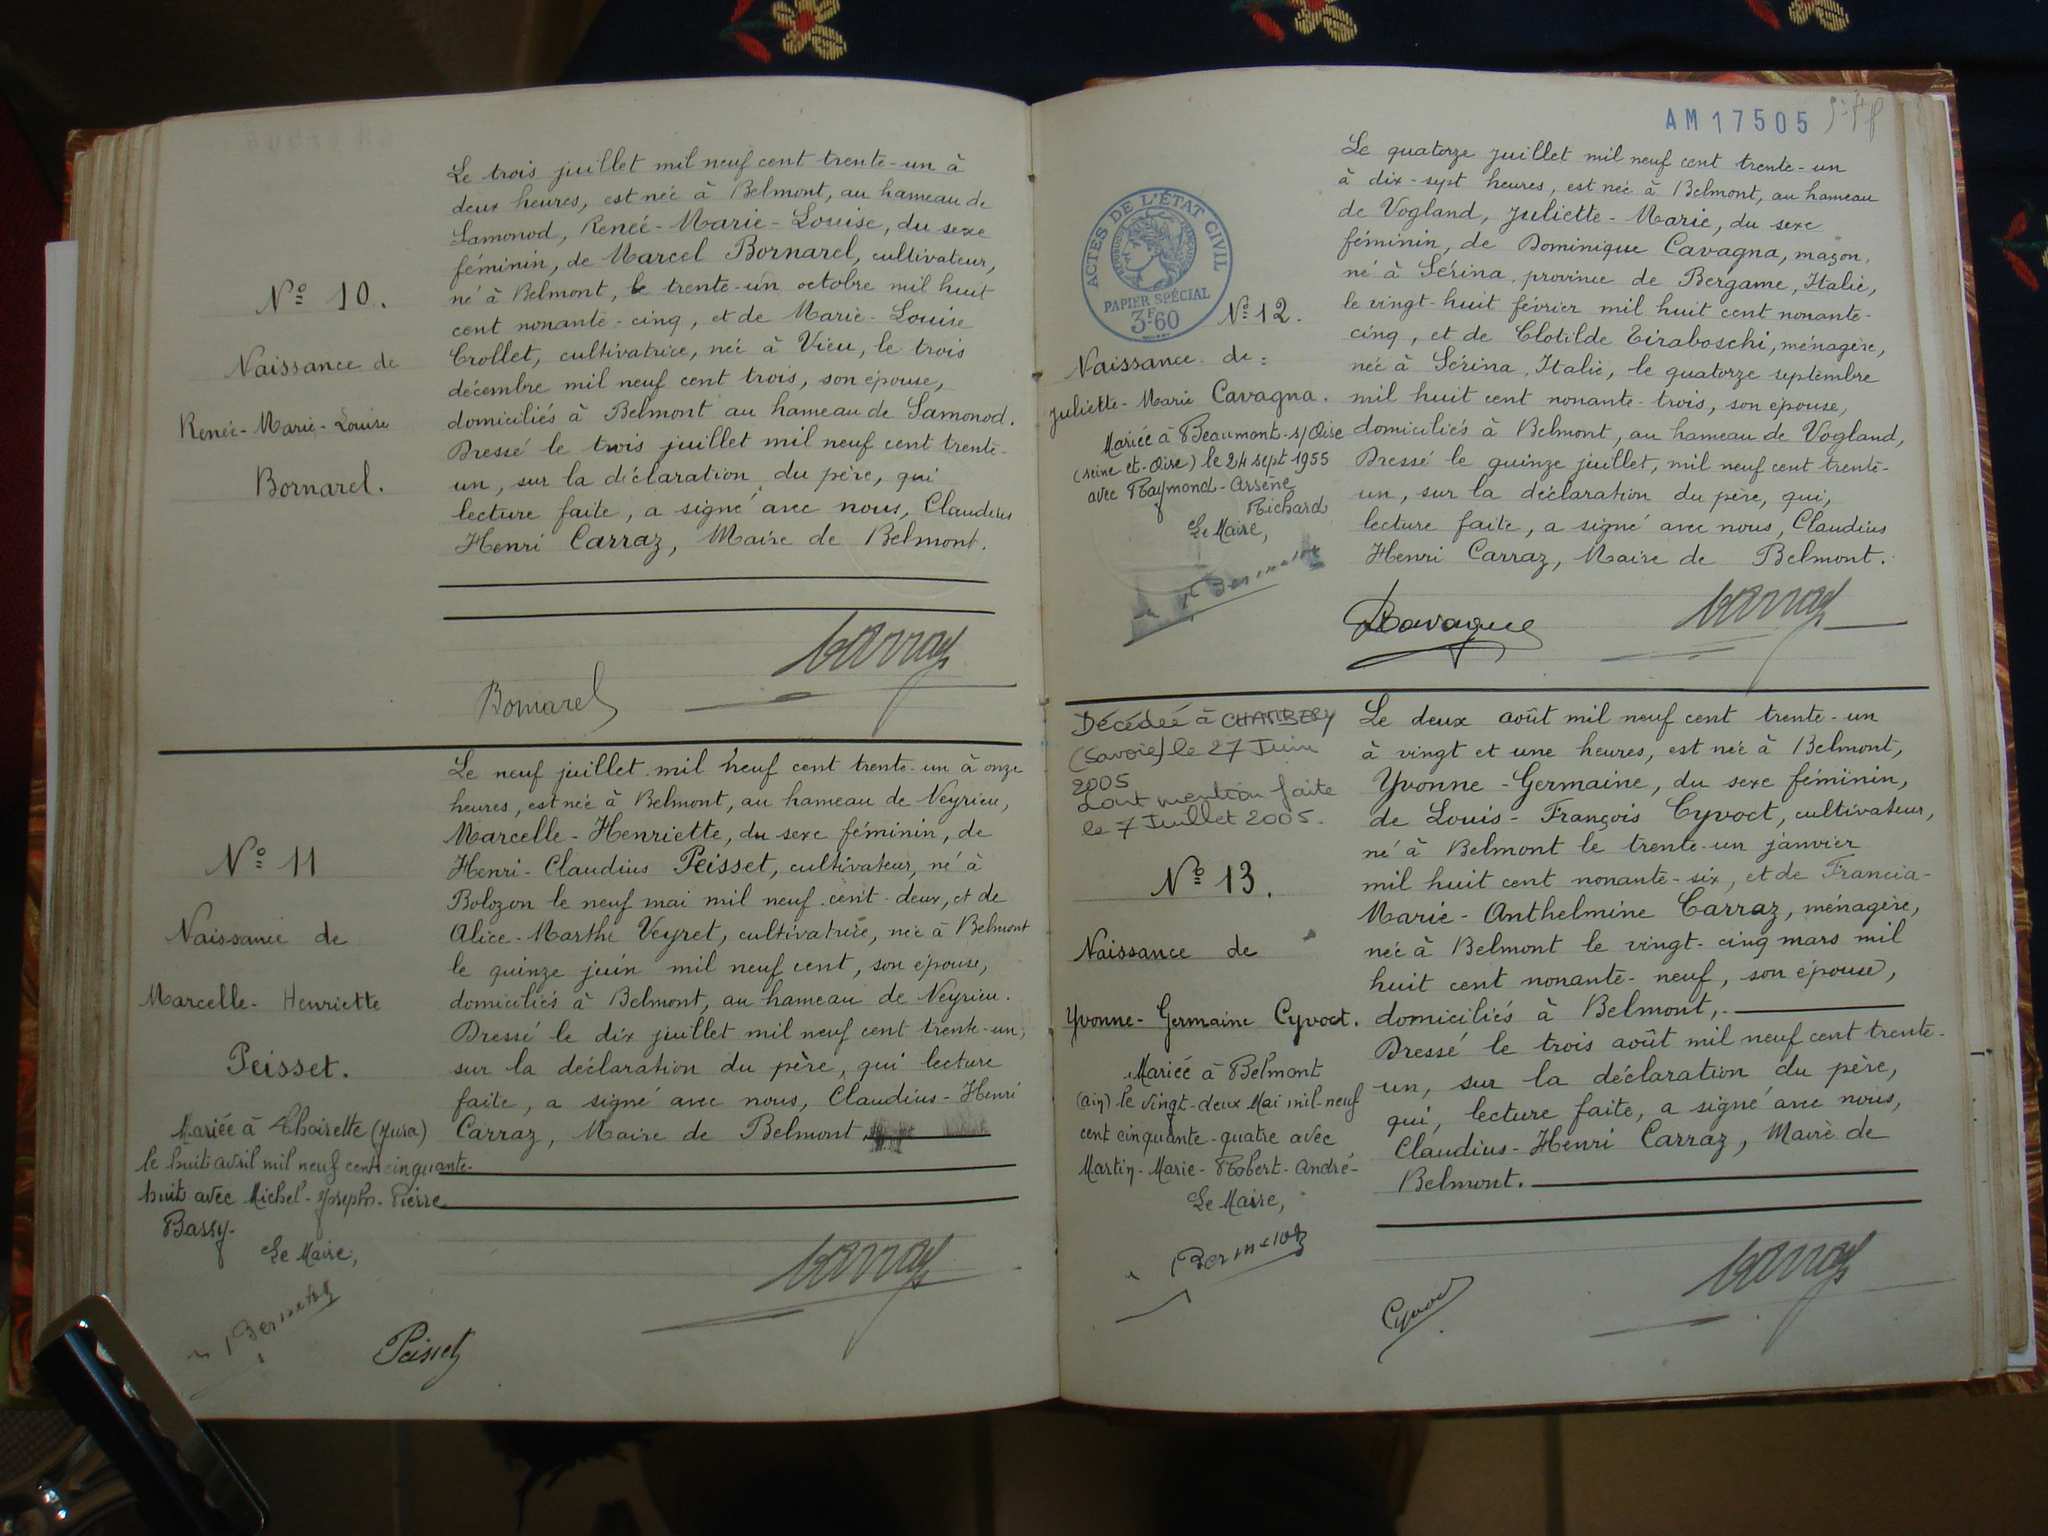 Nº 10.
Naissance de
Renée-Marie-Louise
Bornarel.
Le trois juillet mil neuf cent trente-un à
deux heures, est née à Belmont, au hameau de
Samonod, Renée-Marie-Louise, du sexe
féminin, de Marcel Bornarel, cultivateur,
né à Belmont, le trente-un octobre mil huit
cent nonante-cinq, et de Marie-Louise
Crollet, cultivatrice, née à Vieu, le trois
décembre mil neuf cent trois, son épouse,
domiciliés à Belmont au hameau de Samonod.
Dressé le trois juillet mil neuf cent trente-
un, sur la déclaration du père, qui
lecture faite, a signé avec nous, Claudius
Henri Carraz, Maire de Belmont.
Bornarel
Carraz
Nº 11
Naissance de
Marcelle-Henriette
Peisset.
Mariée à Thoirette (Jura)
le huit avril mil neuf cent cinquante-
huit avec Michel-Joseph-Pierre
Bassy.
Le Maire,
Le neuf juillet mil neuf cent trente-un à onze
heures, est née à Belmont, au hameau de Veyrieu,
Marcelle-Henriette, du sexe féminin, de
Henri-Claudius Peisset, cultivateur, né à
Bolozon le neuf mai mil neuf cent-deux, et de
Alice-Marthe Veyret, cultivatrice, née à Belmont
le quinze juin mil neuf cent, son épouse,
domiciliés à Belmont, au hameau de Veyrieu.
Dressé le dix juillet mil neuf cent trente-un,
sur la déclaration du père, qui lecture
faite, a signé avec nous, Claudius-Henri
Carraz, Maire de Belmont
Peisset
Carraz
AM 17505
ACTES DE L'ÉTAT CIVIL
PAPIER SPÉCIAL
3F60
Nº 12.
Naissance de:
Juliette-Marie Cavagna.
Mariée à Beaumont-s/Oise
(seine et-Oise) le 24 sept 1955
avec Raymond-Arsène
Richard
Le Maire,
Le quatorze juillet mil neuf cent trente-un
à dix-sept heures, est née à Belmont, au hameau
de Vogland, Juliette-Marie, du sexe
féminin, de Dominique Cavagna, maçon,
né à Sérina, province de Bergame, Italie,
le vingt-huit février mil huit cent nonante-
cinq, et de Clotilde Tiraboschi, ménagère,
née à Sérina, Italie, le quatorze septembre
mil huit cent nonante-trois, son épouse,
domiciliés à Belmont, au hameau de Vogland,
Dressé le quinze juillet, mil neuf cent trente-
un, sur la déclaration du père, qui,
lecture faite, a signé avec nous, Claudius
Henri Carraz, Maire de Belmont.
Carraz
Décédée à CHAMBERY
(Savoie) le 27 Juin
2005
dont mention faite
le 7 Juillet 2005.
Nº 13.
Naissance de
Yvonne-Germaine Cyvoct.
Mariée à Belmont
(Ain) le vingt-deux Mai mil-neuf
cent cinquante-quatre avec
Martin-Marie-Robert-André-
Le Maire,
Le deux août mil neuf cent trente-un
à vingt et une heures, est née à Belmont,
Yvonne-Germaine, du sexe féminin,
de Louis-François Cyvoct, cultivateur,
né à Belmont le trente-un janvier
mil huit cent nonante-six, et de Francia-
Marie-Anthelmine Carraz, ménagère,
née à Belmont le vingt-cinq mars mil
huit cent nonante-neuf, son épouse,
domiciliés à Belmont,
Dressé le trois août mil neuf cent trente-
un, sur la déclaration du père,
qui, lecture faite, a signé avec nous,
Claudius-Henri Carraz, Maire de
Belmont.
Cyvoct
Carraz